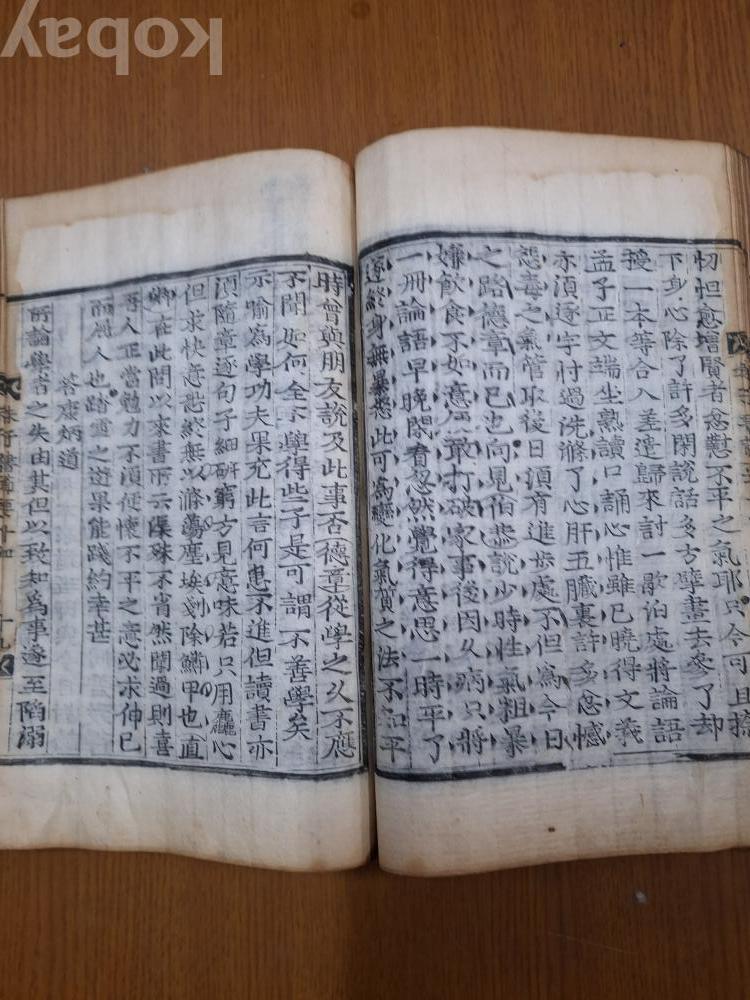 kobay
忉怛愈增賢者忿懟不平之氣耶只今可且捺
下身心除了許多閑說話多方擘畫去參了却
授一本等合入差遣歸來討一歇泊處將論語
孟子正文端坐熟讀口誦心惟雖已曉得文義
亦須逐字忖過洗滌了心肝五臟裏許多忿憾
怨毒之氣管取後日須有進步處不但爲今日
之路德章而已也向見伯恭說少時性氣粗暴
嫌飲食不如意便敢打破家事後因久病只將
一冊論語早晚閑看忽然覺得意思一時平了
遂終身無暴怒此可爲變化氣質之法不知平
時曾與朋友說及此事否德章從學之久不應
不聞如何全不學得些子是可謂不善學矣
示喻爲學功夫果充此言何患不進但讀書亦
須隨章逐句子細硏窮方見意味若只用麤心
但求快意恐終無以滌蕩塵埃剗除鱗甲也直
卿在此間以來書所云渠殊不省然聞過則喜
吾人正當勉力不須便懷不平之意必求伸己
而屈人也踏雪之遊果能踐約幸甚
答康炳道
所論學者之失由其但以致知爲事遂至陷溺
朱子書節要十四 十九